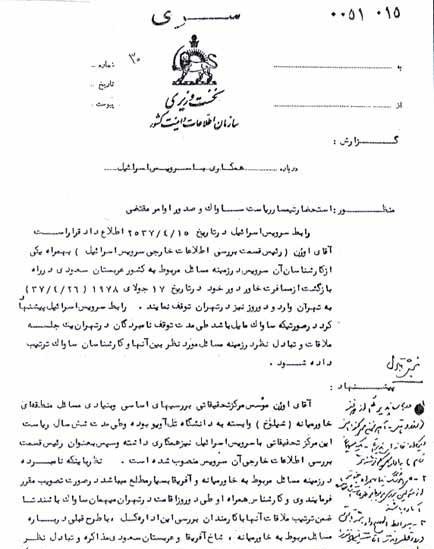 سری
۰۰۵۱ ۰۱۵
به
شماره
۳۰
تاریخ
از
پیوست
نخست وزیری
سازمان اطلاعات و امنیت کشور
گزارش :
درباره همکاری با سرویس اسرائیل
منظور : استحضار تیمسار ریاست ساواک و صدور اوامر مقتضی
رابط سرویس اسرائیل در تاریخ ۲۵۳۷/۴/۱۵ اطلاع داد قرار است
آقای اوژن ( رئیس قسمت بررسی اطلاعات خارجی سرویس اسرائیل ) بهمراه یکی
از کارشناسان آن سرویس در زمینه مسائل مربوط به کشور عربستان سعودی در راه
بازگشت از مسافرت خاور دور خود در ۱۷ جولای ۱۹۷۸ (۳۷/۴/۲۶)
به تهران وارد و دو روز نیز در تهران توقف نمایند . رابط سرویس اسرائیل پیشنهاد
کرد در صورتیکه ساواک مایل باشد طی مدت توقف نامبردگان در تهران یک جلسه
ملاقات و تبادل نظر در زمینه مسائل مورد نظر بین آنها و کارشناسان ساواک ترتیب
داده شود .
پیشنهاد :
آقای اوژن مؤسس مرکز تحقیقاتی بررسیهای اساسی و بنیادی مسائل منطقه‌ای
خاورمیانه ( شیلوخ ) وابسته به دانشگاه تل‌آویو بوده و طی مدت شش سال ریاست
این مرکز تحقیقاتی با سرویس اسرائیل نیز همکاری داشته و سپس بعنوان رئیس قسمت
بررسی اطلاعات خارجی آن سرویس منصوب شده است . نظر باینکه نامبرده
در زمینه مسائل مربوط به خاورمیانه و آفریقا بسیار مطلع میباشد در صورت تصویب مقرر
فرمایند وی و کارشناس همراه او طی دو روز اقامت در تهران میهمان ساواک باشند تا
ضمن ترتیب ملاقات آنها با کارمندان بررسی این اداره کل ، با طرح قبلی درباره
مسائل مربوط به خاورمیانه ، شاخ آفریقا و عربستان سعودی مذاکره و تبادل نظر